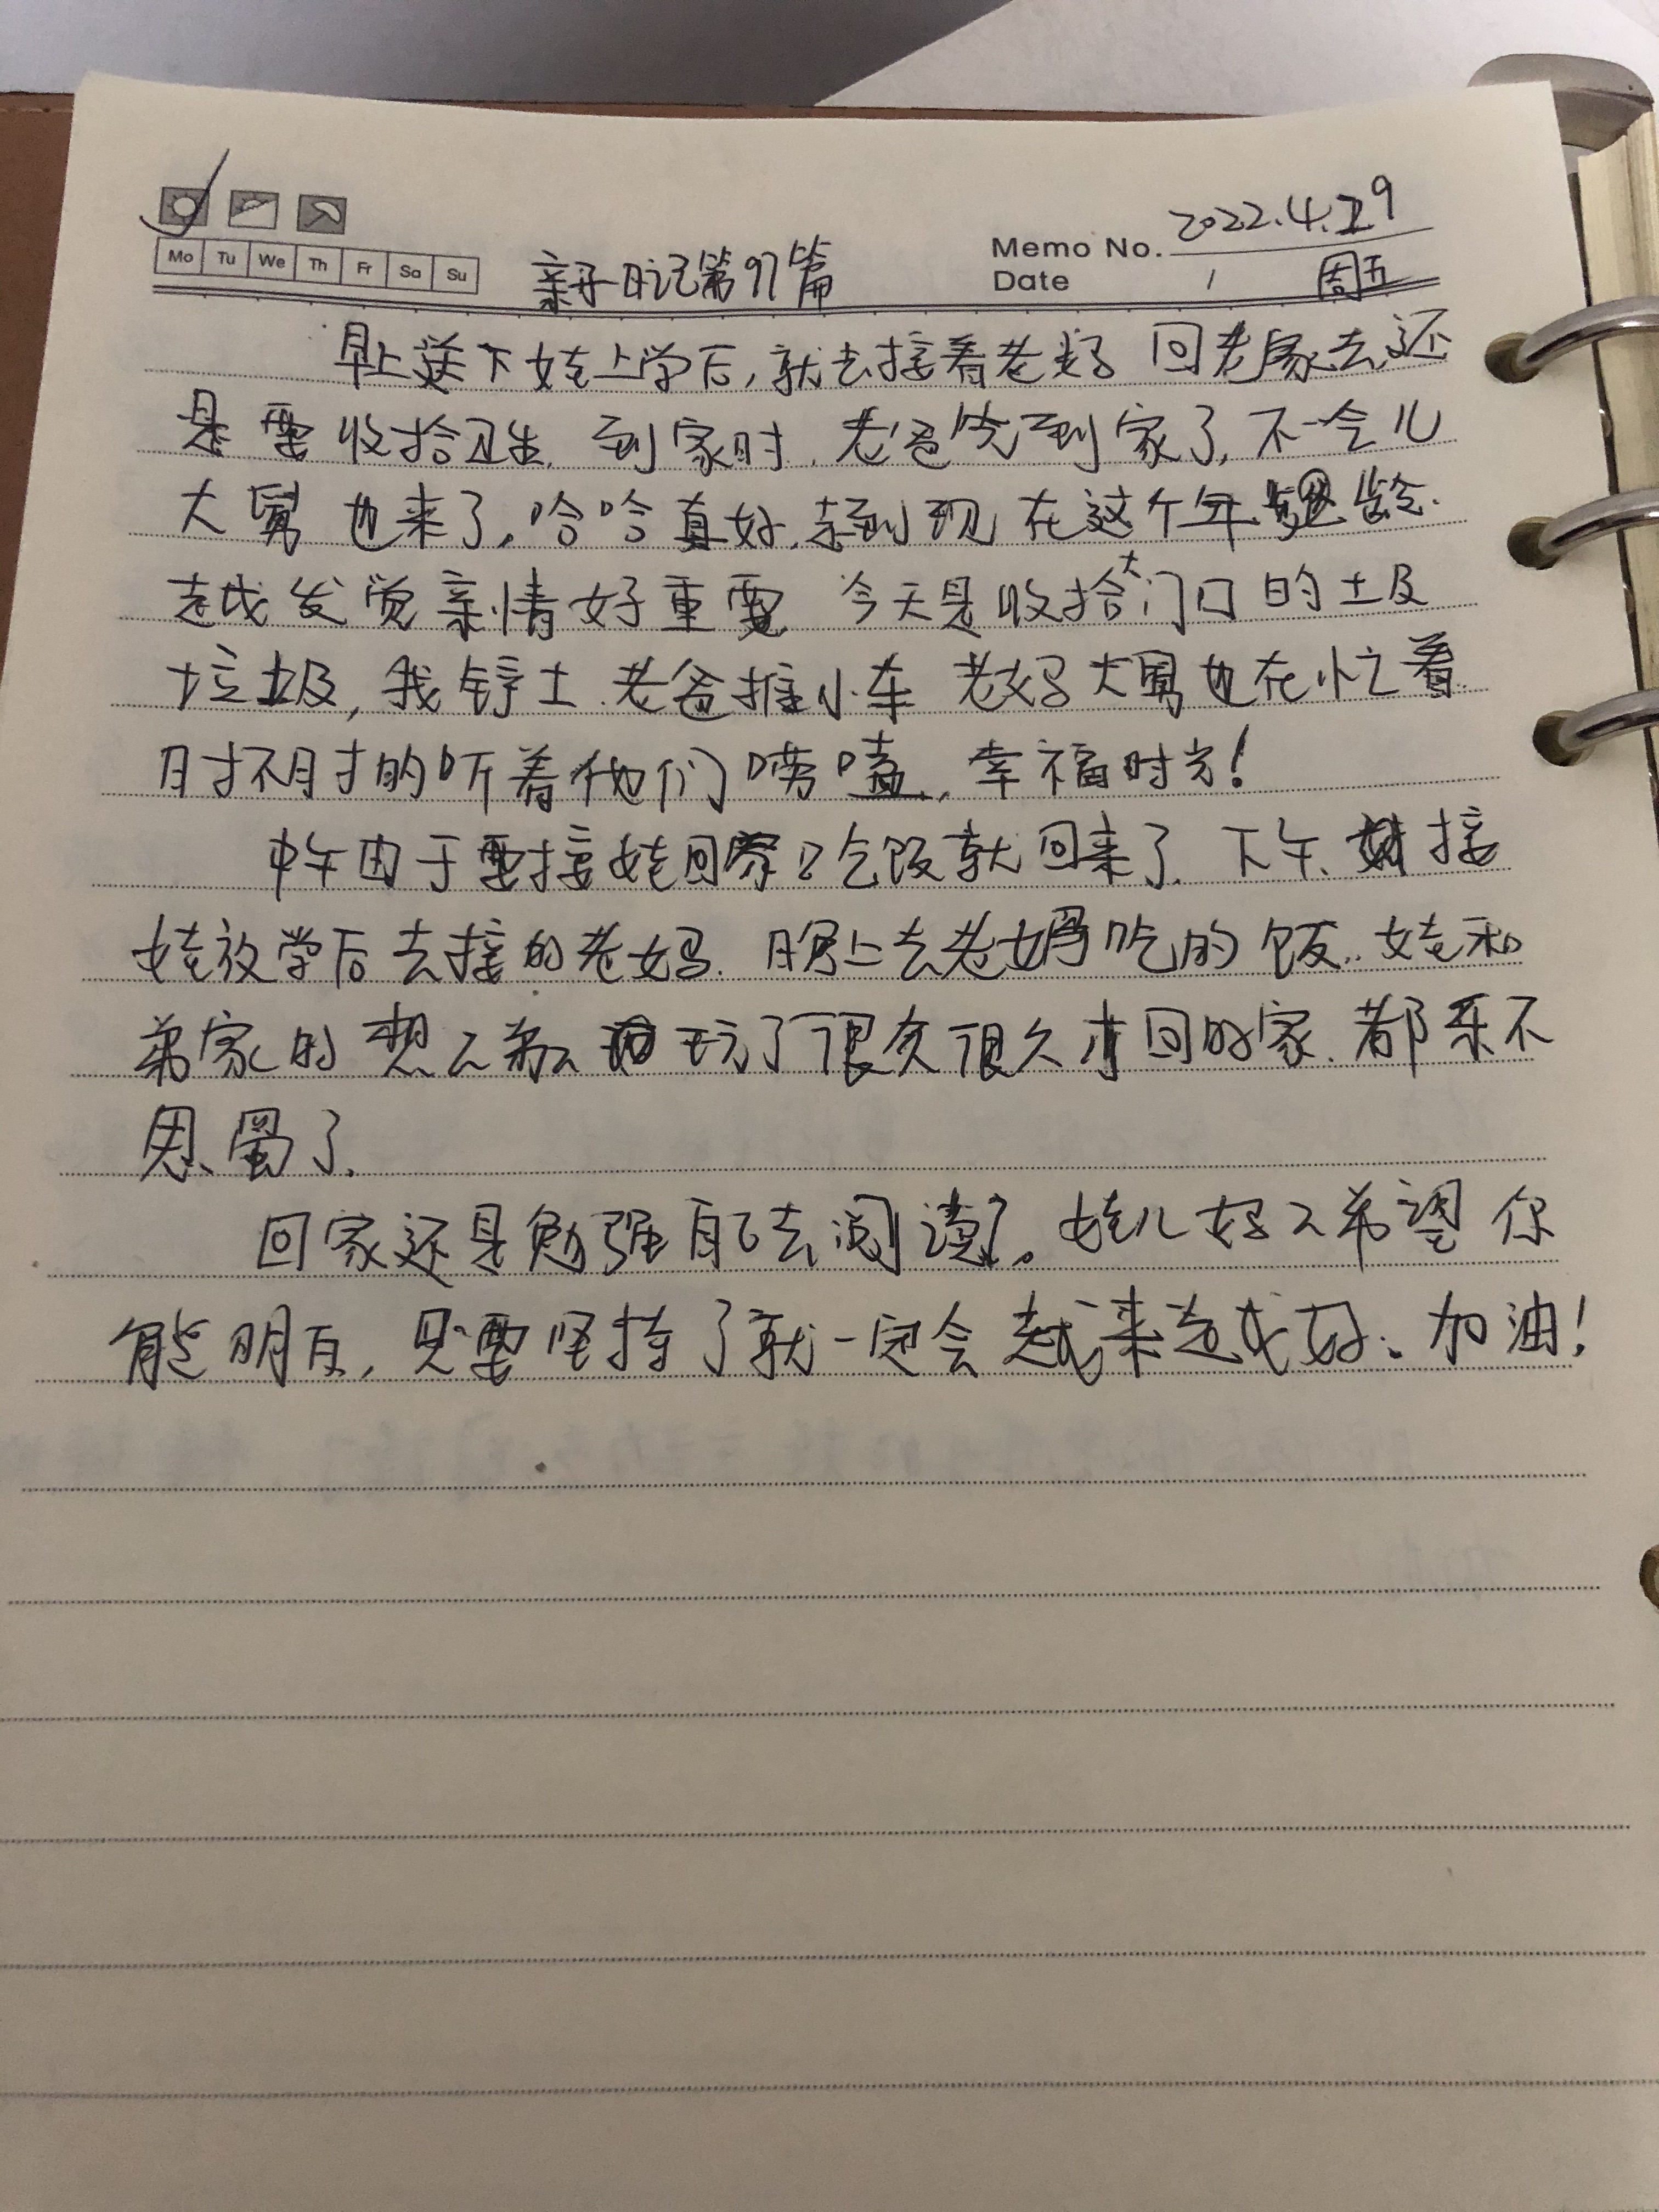 2022.4.29
Memo No.
Mo Tu We Th Fr Sa Su
亲子日记第97篇
Date / 周五
早上送下娃上学后,就去接着老妈 回老家去,还
是要收拾卫生. 到家时.老爸先到家了,不一会儿
大舅也来了,哈哈真好.来到现在这个年龄.
越发觉亲情好重要 今天是收拾大门口的土圾
垃圾,我铲土.老爸推小车 老妈大舅也在忙着.
时不时的听着他们唠嗑.,幸福时光!
中午由于要接娃回家吃饭就回来了.下午.接
娃放学后去接的老妈.晚上去老妈吃的饭..娃和
弟家的 玩了很久很久才回的家.都乐不
思蜀了.
回家还是勉强自己去阅读了。娃儿好好希望你
能明白,只要坚持了就一定会越来越好.加油!